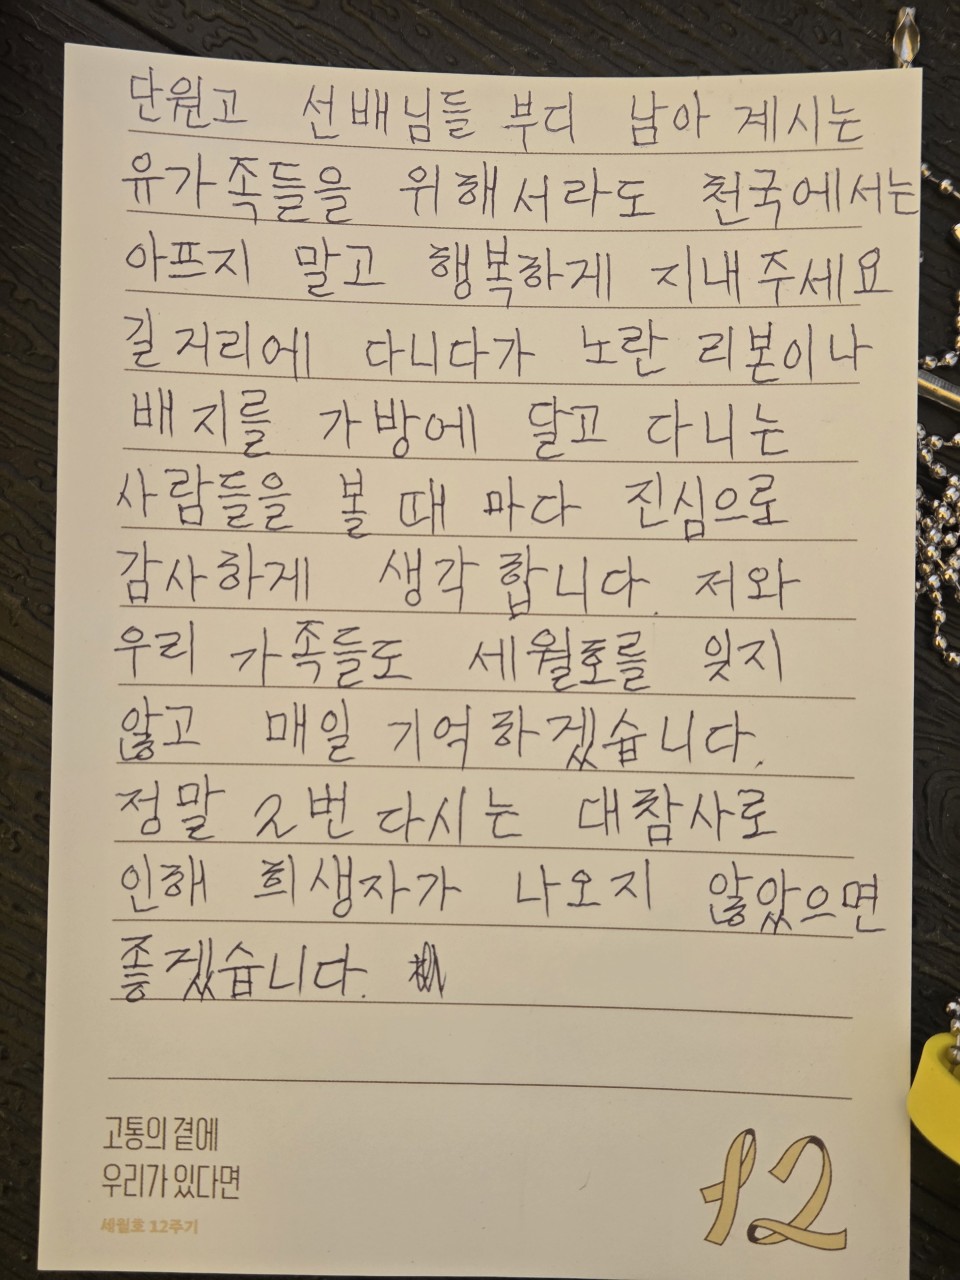 단원고 선배님들 부디 남아 계시는
유가족들을 위해서라도 천국에서는
아프지 말고 행복하게 지내주세요
길거리에 다니다가 노란 리본이나
배지를 가방에 달고 다니는
사람들을 볼 때 마다 진심으로
감사하게 생각 합니다. 저와
우리 가족들도 세월호를 잊지
않고 매일 기억하겠습니다.
정말 2번 다시는 대참사로
인해 희생자가 나오지 않았으면
좋겠습니다.
고통의 곁에
우리가 있다면
세월호 12주기
12